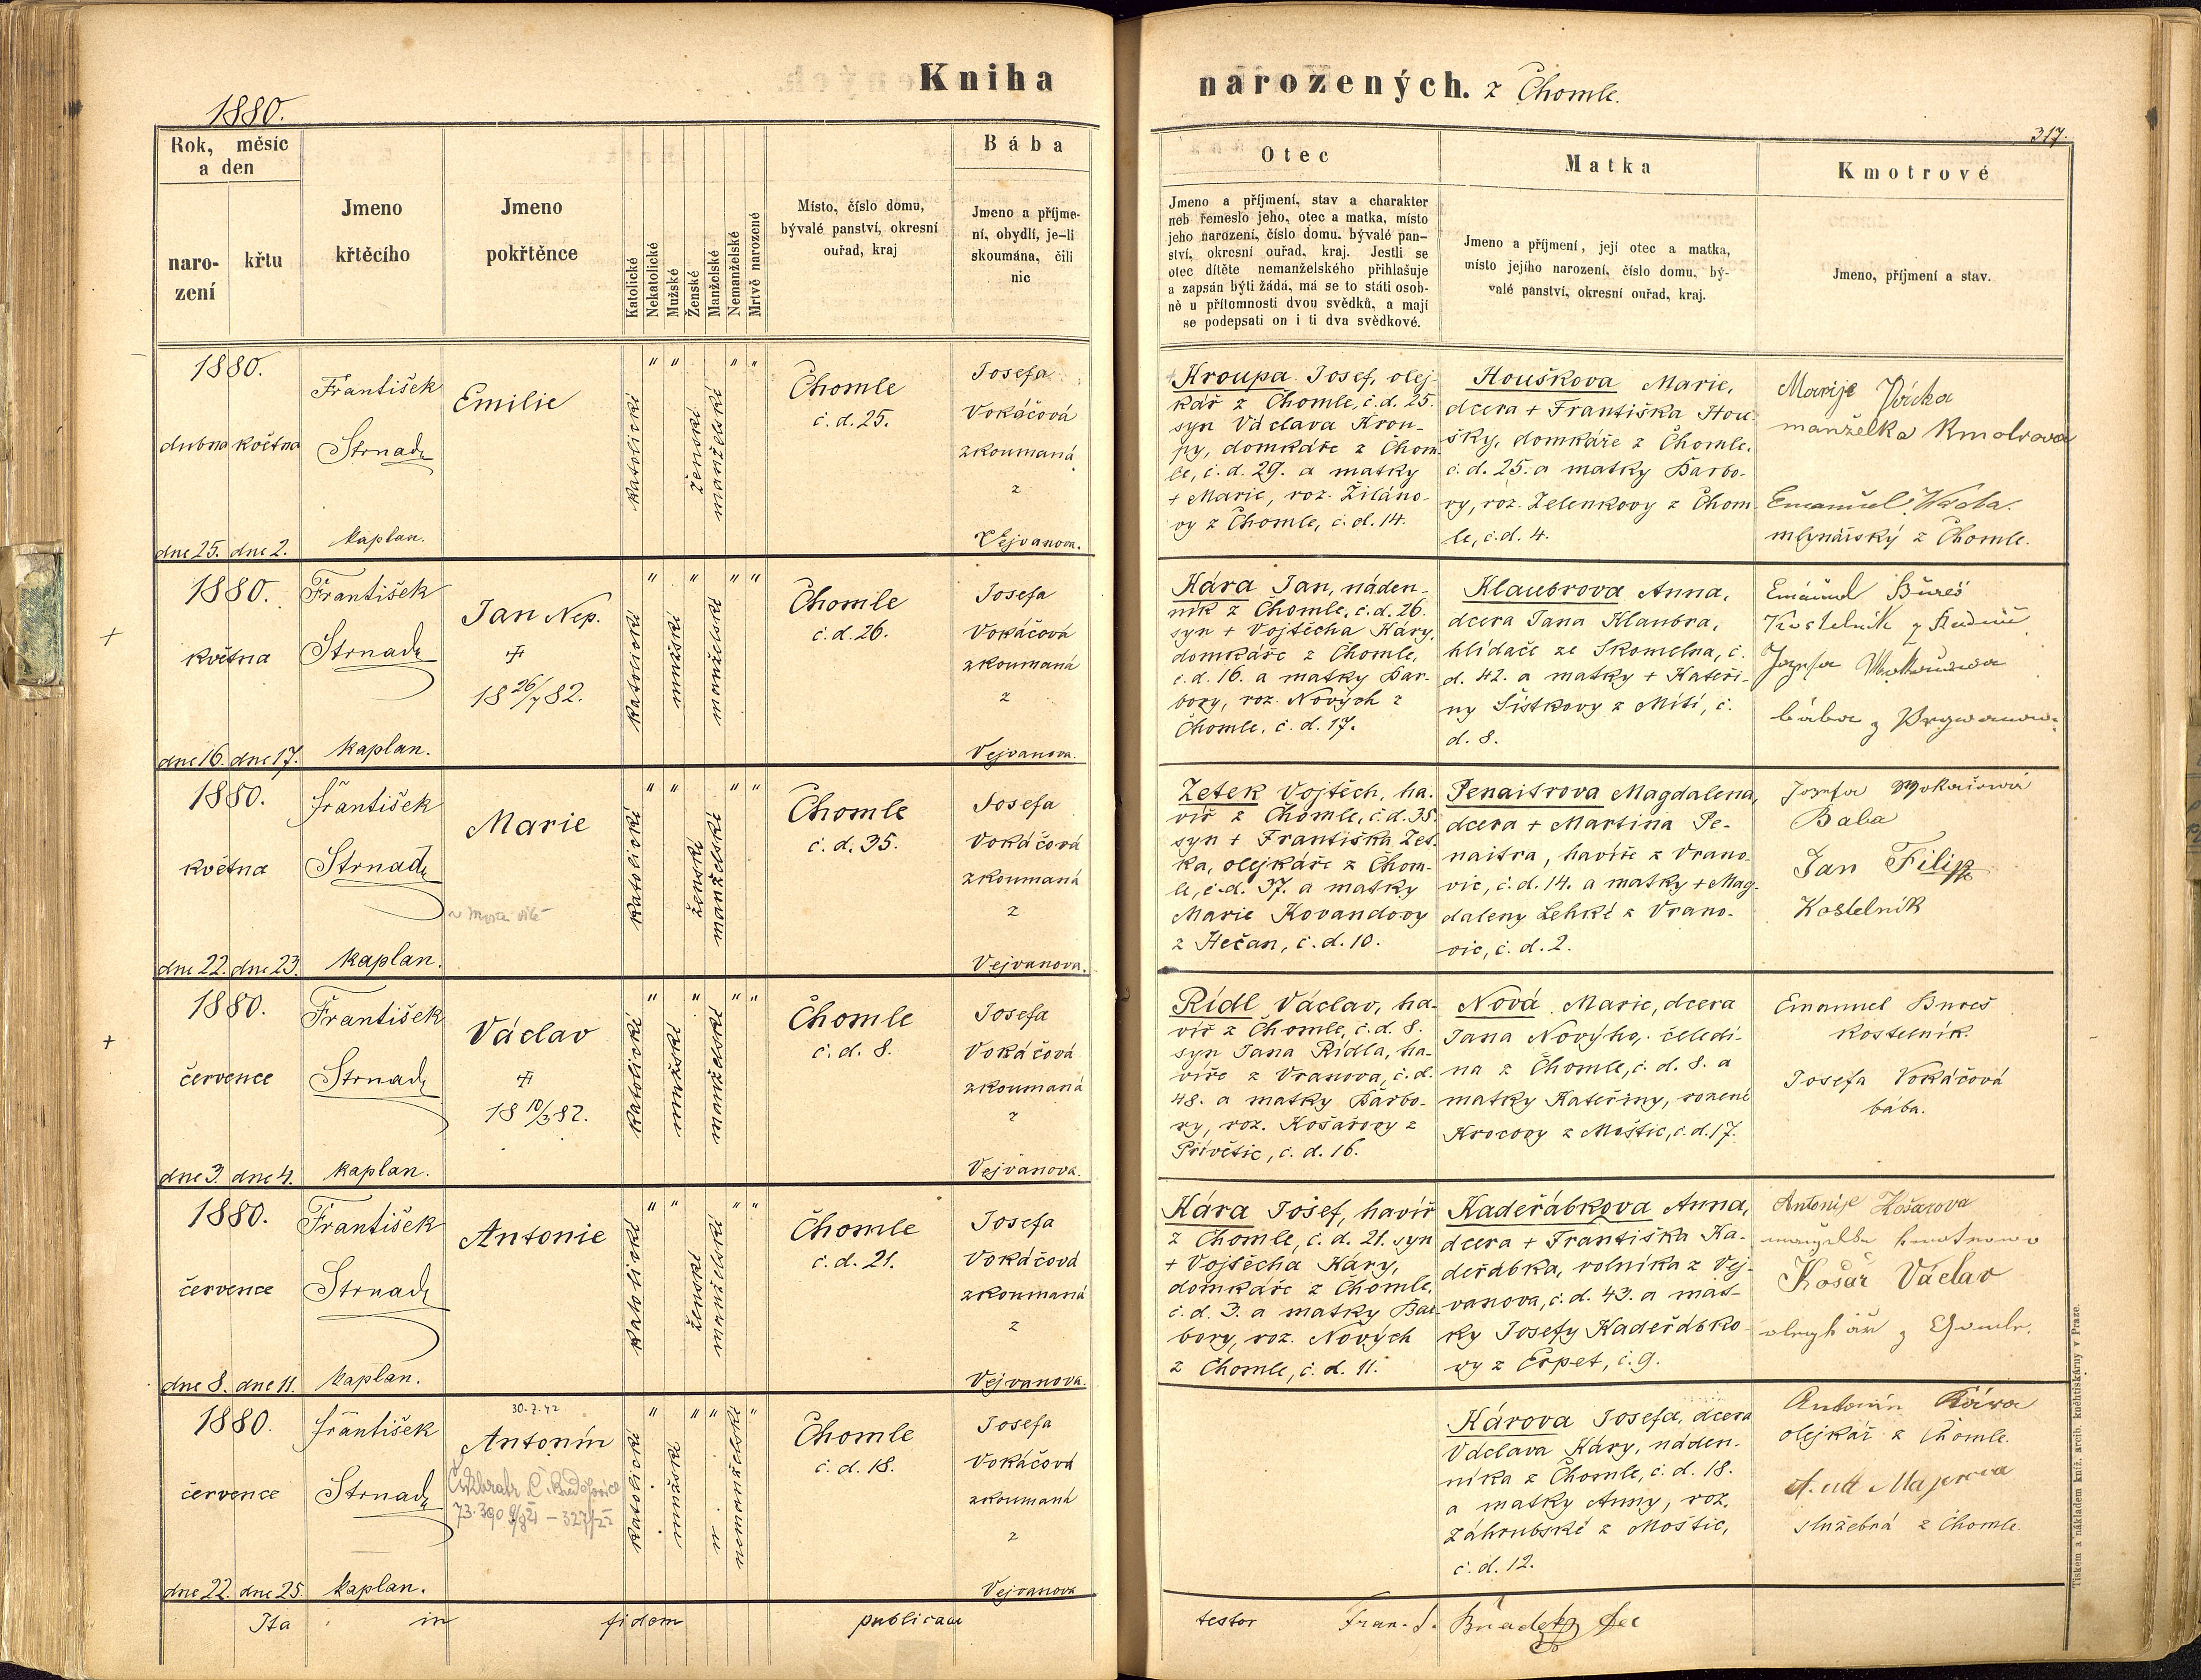 Kniha
narozených. z Chomle.
1880.
317.
Rok, měsíc
a den
naro-
zení
křtu
Jmeno
křtěcího
Jmeno
pokřtěnce
Katolické
Nekatolické
Mužské
Ženské
Manželské
Nemanželské
Mrtvě narozené
Místo, číslo domu,
bývalé panství, okresní
ouřad, kraj
Bába
Jmeno a příjme-
ní, obydlí, je-li
skoumána, čili
nic
Otec
Jmeno a příjmení, stav a charakter
neb řemeslo jeho, otec a matka, místo
jeho narození, číslo domu, bývalé pan-
ství, okresní ouřad, kraj. Jestli se
otec dítěte nemanželského přihlašuje
a zapsán býti žádá, má se to státi osob-
ně u přítomnosti dvou svědků, a mají
se podepsati on i ti dva svědkové.
Matka
Jmeno a příjmení, její otec a matka,
místo jejího narození, číslo domu, bý-
valé panství, okresní ouřad, kraj.
Kmotrové
Jmeno, příjmení a stav.
1880.
dubna května
dne 25. dne 2.
František
Strnad
kaplan.
Emilie
katolické
ženské
manželské
Chomle
č. d. 25.
Josefa
Vokáčová
zkoumaná
z
Vejvanova.
Kroupa Josef, olej-
kář z Chomle, č. d. 25.
syn Václava Krou-
py, domkáře z Chom-
le, č. d. 29. a matky
+ Marie, roz. Žiláno-
vy z Chomle, č. d. 14.
Houškova Marie,
dcera + Františka Hou-
šky, domkáře z Chomle,
č. d. 25. a matky Barbo-
ry, roz. Zelenkovy z Chom-
le, č. d. 4.
Marije
manželka Kmotrova
Emanuel
mlynářský z Chomle.
1880.
května
dne 16. dne 17.
František
Strnad
kaplan.
Jan Nep.
18 26/7 82.
katolické
mužské
manželské
Chomle
č. d. 26.
Josefa
Vokáčová
zkoumaná
z
Vejvanova.
Kára Jan, náden-
ník z Chomle, č. d. 26.
syn + Vojtěcha Káry,
domkáře z Chomle,
č. d. 16. a matky Bar-
bory, roz. Nových z
Chomle, č. d. 17.
Klaubrova Anna,
dcera Jana Klaubra,
hlídače ze Skomelna, č.
d. 42. a matky + Kateři-
ny Šístkovy z Mítí, č.
d. 8.
Emanuel Bureš
Kostelník z
Jozefa
bába z
1880.
května
dne 22. dne 23.
František
Strnad
kaplan.
Marie
katolické
ženské
manželské
Chomle
č. d. 35.
Josefa
Vokáčová
zkoumaná
z
Vejvanova.
Zetek Vojtěch, ha-
víř z Chomle, č. d. 35.
syn + Františka Zet-
ka, olejkáře z Chom-
le, č. d. 37. a matky
Marie Kovandovy
z Hečan, č. d. 10.
Penaitrova Magdalena,
dcera + Martina Pe-
naitra, havíře z Vrano-
vic, č. d. 14. a matky + Mag-
daleny Lehké z Vrano-
vic, č. d. 2.
Jozefa Wokačowá
Baba
Jan Filip
Kostelník
1880.
července
dne 3. dne 4.
František
Strnad
kaplan.
Václav
18 10/3 82.
katolické
mužské
manželské
Chomle
č. d. 8.
Josefa
Vokáčová
zkoumaná
z
Vejvanova.
Rídl Václav, ha-
víř z Chomle, č. d. 8.
syn Jana Rídla, ha-
víře z Vranova, č. d.
48. a matky Barbo-
ry, roz. Košařovy z
Přívětic, č. d. 16.
Nová Marie, dcera
Jana Novýho, čeledí-
na z Chomle, č. d. 8. a
matky Kateřiny, rozené
Krocovy z Moštic, č. d. 17.
Emanuel Bureš
kostelník.
Josefa Vokáčová
bába.
1880.
července
dne 8. dne 11.
František
Strnad
kaplan.
Antonie
katolické
ženské
manželské
Chomle
č. d. 21.
Josefa
Vokáčová
zkoumaná
z
Vejvanova.
Kára Josef, havíř
z Chomle, č. d. 21. syn
+ Vojtěcha Káry,
domkáře z Chomle,
č. d. 3. a matky Bar-
bory, roz. Nových
z Chomle, č. d. 11.
Kadeřábkova Anna,
dcera + Františka Ka-
deřábka, rolníka z Vej-
vanova, č. d. 43. a mat-
ky Josefy Kadeřábko-
vy z Ejpet, č. 9.
Antonije Košarova
Košař Václav
1880.
července
dne 22. dne 25.
František
Strnad
kaplan.
30.7.42
Antonín
katolické
mužské
nemanželské
Chomle
č. d. 18.
Josefa
Vokáčová
zkoumaná
z
Vejvanova
Károva Josefa, dcera
Václava Káry, náden-
níka z Chomle, č. d. 18.
a matky Anny, roz.
Záhrubské z Moštic,
č. d. 12.
Antonín Kára
olejkář z Chomle.
Majerova
služebná z Chomle.
Ita in fidem publicam
testor Fran. S.
Tiskem a nákladem kníž. arcib. kněhtiskárny v Praze.